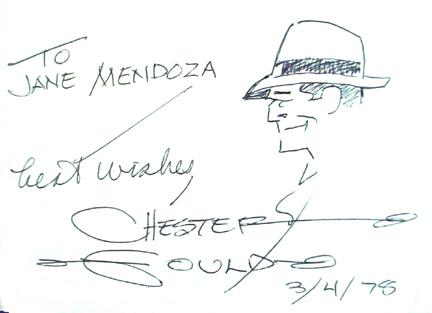 TO
JANE MENDOZA
best wishes
CHESTER
GOULD
3/4/78